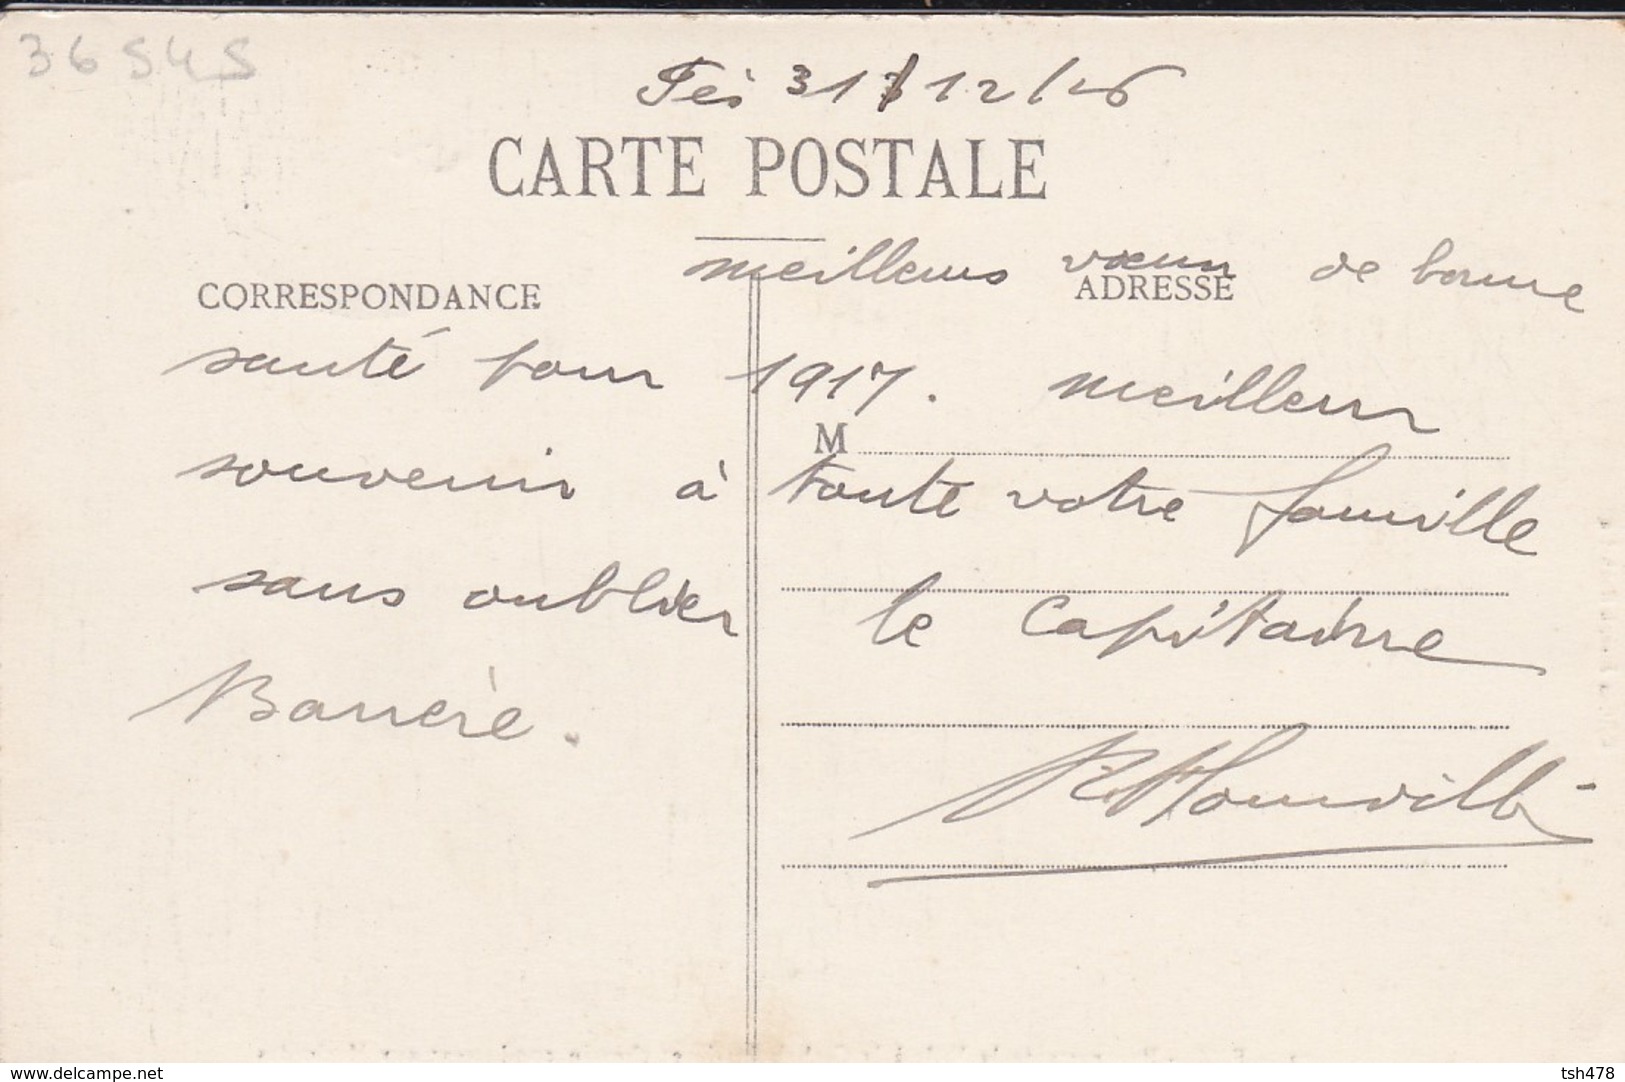 36545
Fès 31/12/16
CARTE POSTALE
meilleurs vœux de bonne
CORRESPONDANCE
ADRESSE
santé pour 1917. meilleur
M
souvenir à toute votre famille
sans oublier le Capitaine
Barrère.
www.delcampe.net
tsh478